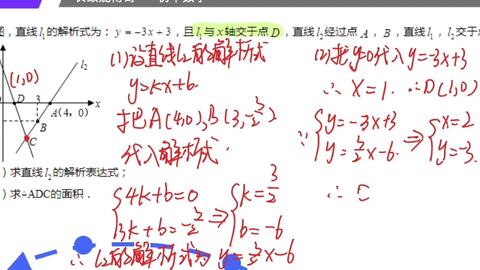 图，直线l₁的解析式为：y=-3x+3，且l₁与x轴交于点D，直线l₂经过点A，B，直线l₁，l₂交于点
(1,0)
l₂
D 3 A(4，0) x
B
C
)求直线l₂的解析表达式；
)求△ADC的面积．
(1)设直线l₂的解析式
y=kx+b.
把A(4,0),B(3,-3/2)
代入解析式.
{4k+b=0
3k+b=-3/2 ⇒ {k=3/2
b=-6
∴ l₂的解析式为 y=3/2x-6
(2)把y=0代入y=-3x+3
∴ x=1. ∴D(1,0)
{y=-3x+3
y=3/2x-6. ⇒ {x=2
y=-3.
∴